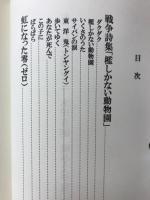 目次
戦争詩集「檻しかない動物園」
ダクダク
檻しかない動物園
いくさのうた
サイパンの涙
東洋鬼(トンヤンクイ)
歩いてゆく
あなたが死んで
この子に
ばらばら
虹になった零(ゼロ)